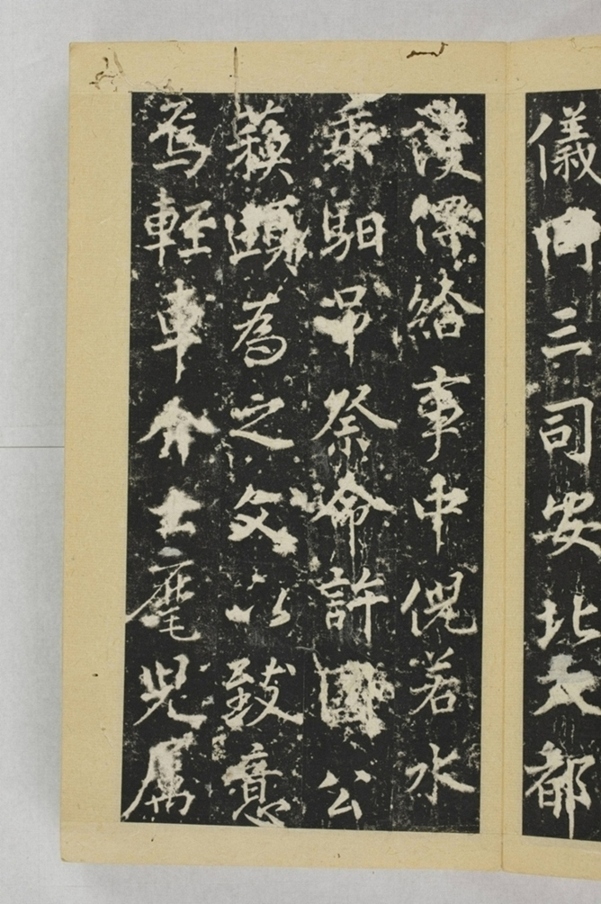 儀同三司安北大都
護俾給事中倪若水
乘馹弔祭命許國公
蘇頲為之文以致意
焉輕車介士麾属